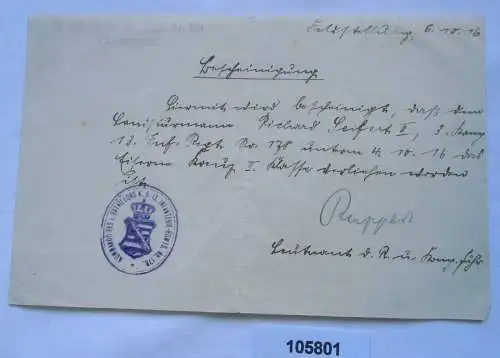 Feldstellung, 6.10.16
Bescheinigung
Hiermit wird bescheinigt, daß dem
Richard Seifert II, 3. Komp
13. Inf. Regt. No. 178 unterm 4.10.16 das
Eiserne Kreuz II. Klasse verliehen worden
ist.
KOMMANDO DES I. BATAILLONS K. S. 13. INFANTERIE-REGTS. NR. 178.
Leutnant d. R. u. Komp. Führ.
105801